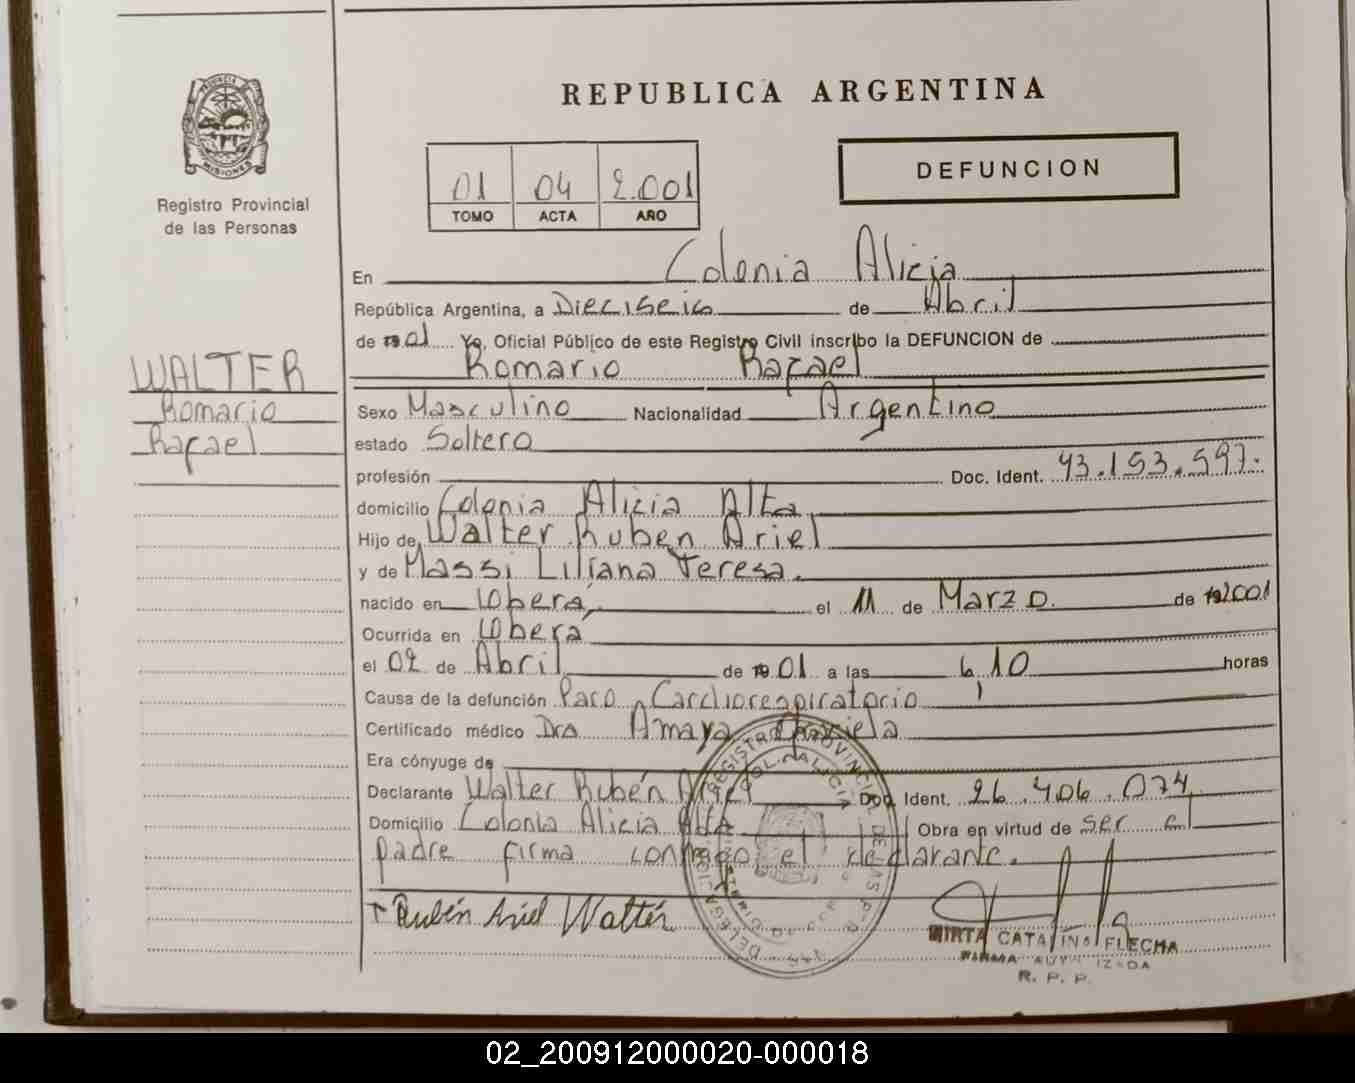 REPUBLICA ARGENTINA
PROVINCIA DE
MISIONES
Registro Provincial
de las Personas
01 04 2.001
TOMO ACTA AÑO
DEFUNCION
En Colonia Alicia
República Argentina, a Dieciseis de Abril
de 01 Yo, Oficial Público de este Registro Civil inscribo la DEFUNCION de
Romario Rafael
WALTER
Romario
Rafael
Sexo Masculino Nacionalidad Argentino
estado Soltero
profesión Doc. Ident. 43.153.597.
domicilio Colonia Alicia Alta
Hijo de Walter Ruben Ariel
y de Massi Liliana Teresa.
nacido en Obera, el 11 de Marzo de 2001
Ocurrida en Obera
el 02 de Abril de 01 a las 6,10 horas
Causa de la defunción Paro Cardiorespiratorio
Certificado médico Dra Amaya
Era cónyuge de
Declarante Walter Rubén Ariel Doc. Ident. 26.406.074
Domicilio Colonia Alicia Alta Obra en virtud de ser el
padre firma conmigo el declarante.
Rubén Ariel Walter
REGISTRO PROVINCIAL DE LAS P
COL. ALICIA
DELEGACION
MIRTA CATALINA FLECHA
FIRMA AUTORIZADA
R. P. P.
02_200912000020-000018